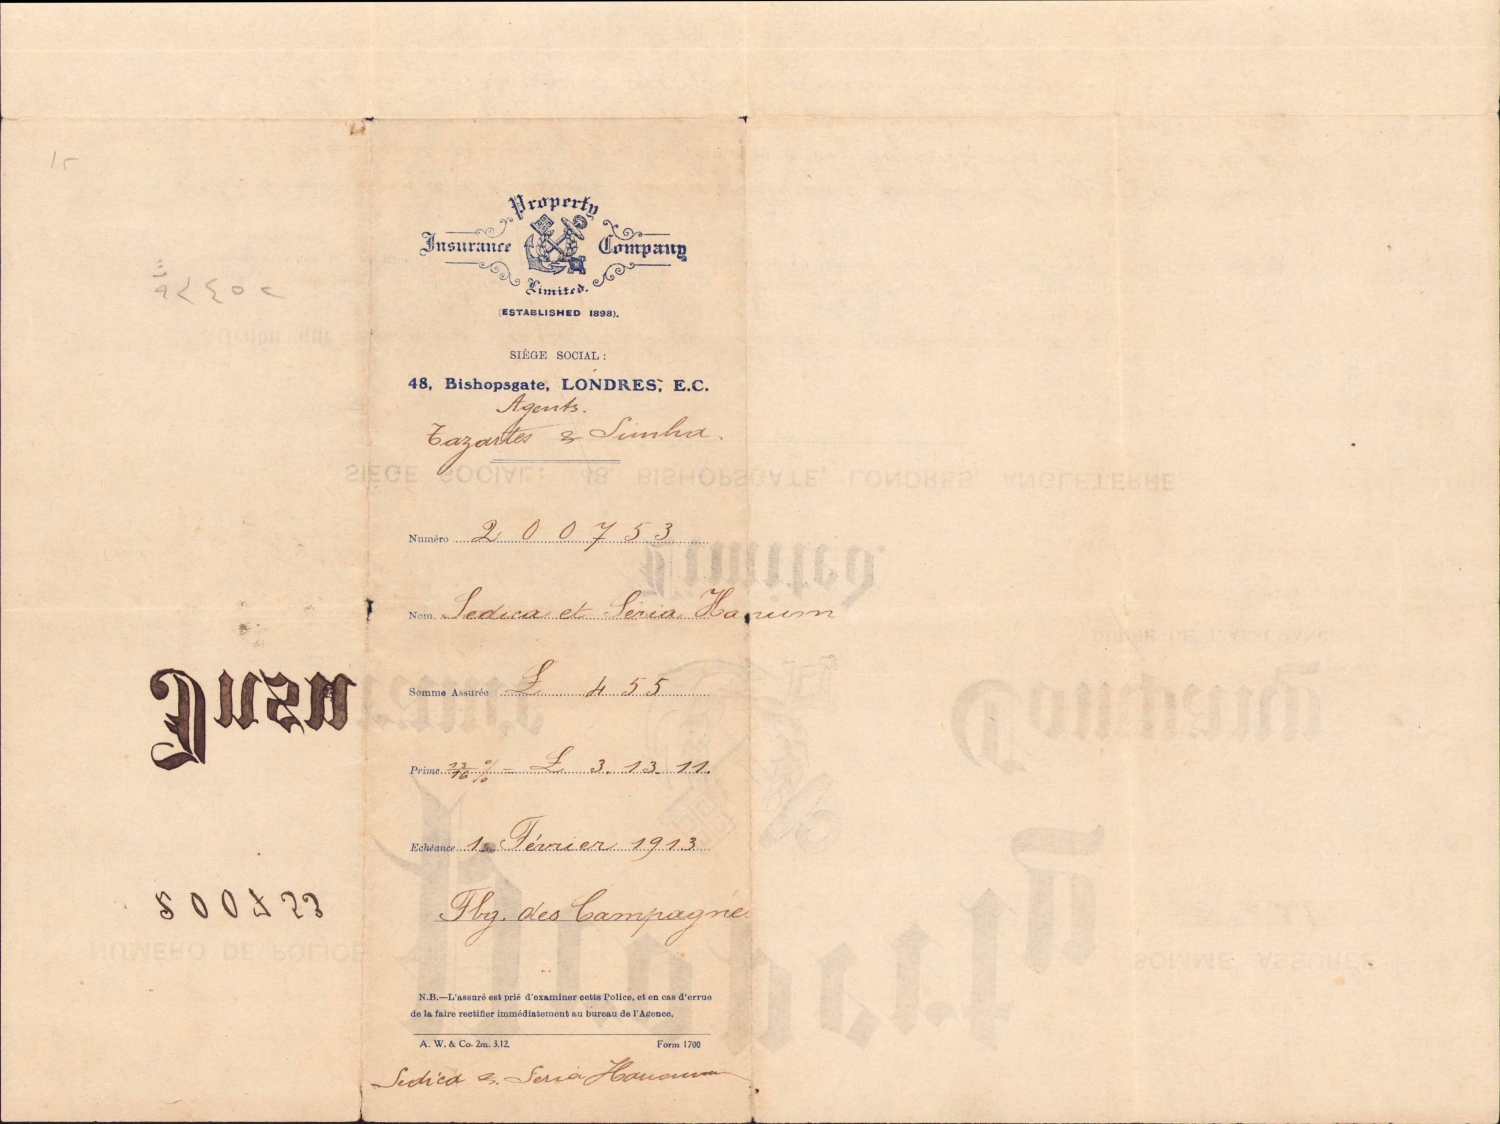 Property
Insurance Company
Limited.
(ESTABLISHED 1898).
SIÈGE SOCIAL:
48, Bishopsgate, LONDRES, E.C.
Agents.
Tazartes & Simha.
Numéro 200753
Nom Sedica et Seria Hanum
Somme Assurée £ 455
Prime 13/16 % = £ 3. 13. 11.
Echéance 1 Février 1913
Fbg. des Campagne
N.B.—L'assuré est prié d'examiner cette Police, et en cas d'errue
de la faire rectifier immédiatement au bureau de l'Agence.
A. W. & Co. 2m. 3.12. Form 1700
Sedica & Seria Hanoum
SIÈGE SOCIAL: 48, BISHOPSGATE, LONDRES, ANGLETERRE
Limited
Insurance
Property
NUMÉRO DE POLICE
SOMME ASSURÉE